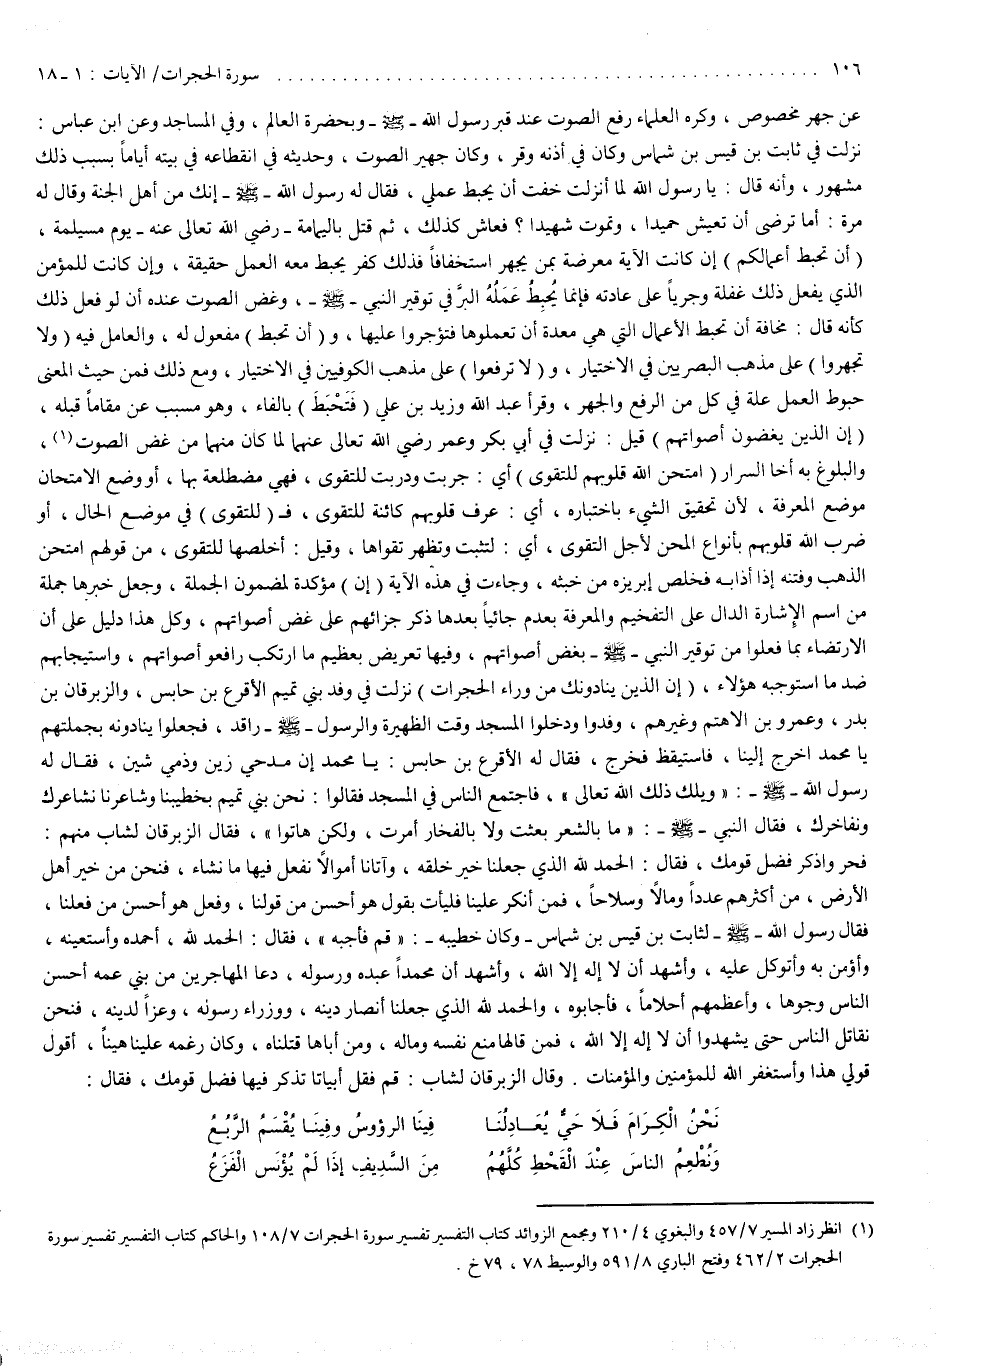 ١٠٦ . . . . . . . . . . . . . . . . . . . . . . . . . . . . . . . . . . . . . . . . . . . . سورة الحجرات/ الآيات : ١ ـ ١٨
عن جهر مخصوص ، وكره العلماء رفع الصوت عند قبر رسول الله ـ ﷺ ـ وبحضرة العالم ، وفي المساجد وعن ابن عباس :
نزلت في ثابت بن قيس بن شماس وكان في أذنه وقر ، وكان جهير الصوت ، وحديثه في انقطاعه في بيته أياماً بسبب ذلك
مشهور ، وأنه قال : يا رسول الله لما أنزلت خفت أن يحبط عملي ، فقال له رسول الله ـ ﷺ ـ إنك من أهل الجنة وقال له
مرة : أما ترضى أن تعيش حميدا ، وتموت شهيدا ؟ فعاش كذلك ، ثم قتل باليمامة ـ رضي الله تعالى عنه ـ يوم مسيلمة ،
( أن تحبط أعمالكم ) إن كانت الآية معرضة بمن يجهر استخفافاً فذلك كفر يحبط معه العمل حقيقة ، وإن كانت للمؤمن
الذي يفعل ذلك غفلة وجرياً على عادته فإنما يُحبِطُ عَمَلُهُ البرَّ في توقير النبي ـ ﷺ ـ ، وغض الصوت عنده أن لو فعل ذلك
كأنه قال : مخافة أن تحبط الأعمال التي هي معدة أن تعملوها فتؤجروا عليها ، و ( أن تحبط ) مفعول له ، والعامل فيه ( ولا
تجهروا ) على مذهب البصريين في الاختيار ، و ( لا ترفعوا ) على مذهب الكوفيين في الاختيار ، ومع ذلك فمن حيث المعنى
حبوط العمل علة في كل من الرفع والجهر ، وقرأ عبد الله وزيد بن علي ( فَتَحْبَطَ ) بالفاء ، وهو مسبب عن مقاماً قبله ،
( إن الذين يغضون أصواتهم ) قيل : نزلت في أبي بكر وعمر رضي الله تعالى عنهما لما كان منهما من غض الصوت(١) ،
والبلوغ به أخا السرار ( امتحن الله قلوبهم للتقوى ) أي : جربت ودربت للتقوى ، فهي مضطلعة بها ، أو وضع الامتحان
موضع المعرفة ، لأن تحقيق الشيء باختباره ، أي : عرف قلوبهم كائنة للتقوى ، فـ ( للتقوى ) في موضع الحال ، أو
ضرب الله قلوبهم بأنواع المحن لأجل التقوى ، أي : لتثبت وتظهر تقواها ، وقيل : أخلصها للتقوى ، من قولهم امتحن
الذهب وفتنه إذا أذابه فخلص إبريزه من خبثه ، وجاءت في هذه الآية ( إن ) مؤكدة لمضمون الجملة ، وجعل خبرها جملة
من اسم الإِشارة الدال على التفخيم والمعرفة بعدم جائياً بعدها ذكر جزائهم على غض أصواتهم ، وكل هذا دليل على أن
الارتضاء بما فعلوا من توقير النبي ـ ﷺ ـ بغض أصواتهم ، وفيها تعريض بعظيم ما ارتكب رافعو أصواتهم ، واستيجابهم
ضد ما استوجبه هؤلاء ، ( إن الذين ينادونك من وراء الحجرات ) نزلت في وفد بني تميم الأقرع بن حابس ، والزبرقان بن
بدر ، وعمرو بن الاهتم وغيرهم ، وفدوا ودخلوا المسجد وقت الظهيرة والرسول ـ ﷺ ـ راقد ، فجعلوا ينادونه بجملتهم
يا محمد اخرج إلينا ، فاستيقظ فخرج ، فقال له الأقرع بن حابس : يا محمد إن مدحي زين وذمي شين ، فقال له
رسول الله ـ ﷺ ـ : « ويلك ذلك الله تعالى » ، فاجتمع الناس في المسجد فقالوا : نحن بني تميم بخطيبنا وشاعرنا نشاعرك
ونفاخرك ، فقال النبي ـ ﷺ ـ : « ما بالشعر بعثت ولا بالفخار أمرت ، ولكن هاتوا » ، فقال الزبرقان لشاب منهم :
فخر واذكر فضل قومك ، فقال : الحمد لله الذي جعلنا خير خلقه ، وآتانا أموالًا نفعل فيها ما نشاء ، فنحن من خير أهل
الأرض ، من أكثرهم عدداً ومالًا وسلاحاً ، فمن أنكر علينا فليأت بقول هو أحسن من قولنا ، وفعل هو أحسن من فعلنا ،
فقال رسول الله ـ ﷺ ـ لثابت بن قيس بن شماس ـ وكان خطيبه ـ : « قم فأجبه » ، فقال : الحمد لله ، أحمده وأستعينه ،
وأؤمن به وأتوكل عليه ، وأشهد أن لا إله إلا الله ، وأشهد أن محمداً عبده ورسوله ، دعا المهاجرين من بني عمه أحسن
الناس وجوها ، وأعظمهم أحلاماً ، فأجابوه ، والحمد لله الذي جعلنا أنصار دينه ، ووزراء رسوله ، وعزاً لدينه ، فنحن
نقاتل الناس حتى يشهدوا أن لا إله إلا الله ، فمن قالها منع نفسه وماله ، ومن أباها قتلناه ، وكان رغمه علينا هيناً ، أقول
قولي هذا وأستغفر الله للمؤمنين والمؤمنات . وقال الزبرقان لشاب : قم فقل أبياتا تذكر فيها فضل قومك ، فقال :
نَحْنُ الْكِرَامُ فَلَا حَيٌّ يُعَادِلُنَا فِينَا الرؤوسُ وفِينَا يُقْسَمُ الرَّبُعُ
وَنُطْعِمُ الناسَ عِنْدَ الْقَحْطِ كُلَّهُمُ مِنَ السَّدِيفِ إذَا لَمْ يُؤْنَسِ الْفَزَعُ
(١) انظر زاد المسير ٤٥٧/٧ والبغوي ٢١٠/٤ ومجمع الزوائد كتاب التفسير تفسير سورة الحجرات ١٠٨/٧ والحاكم كتاب التفسير تفسير سورة
الحجرات ٤٦٢/٢ وفتح الباري ٥٩١/٨ والوسيط ٧٨ ، ٧٩ خ .